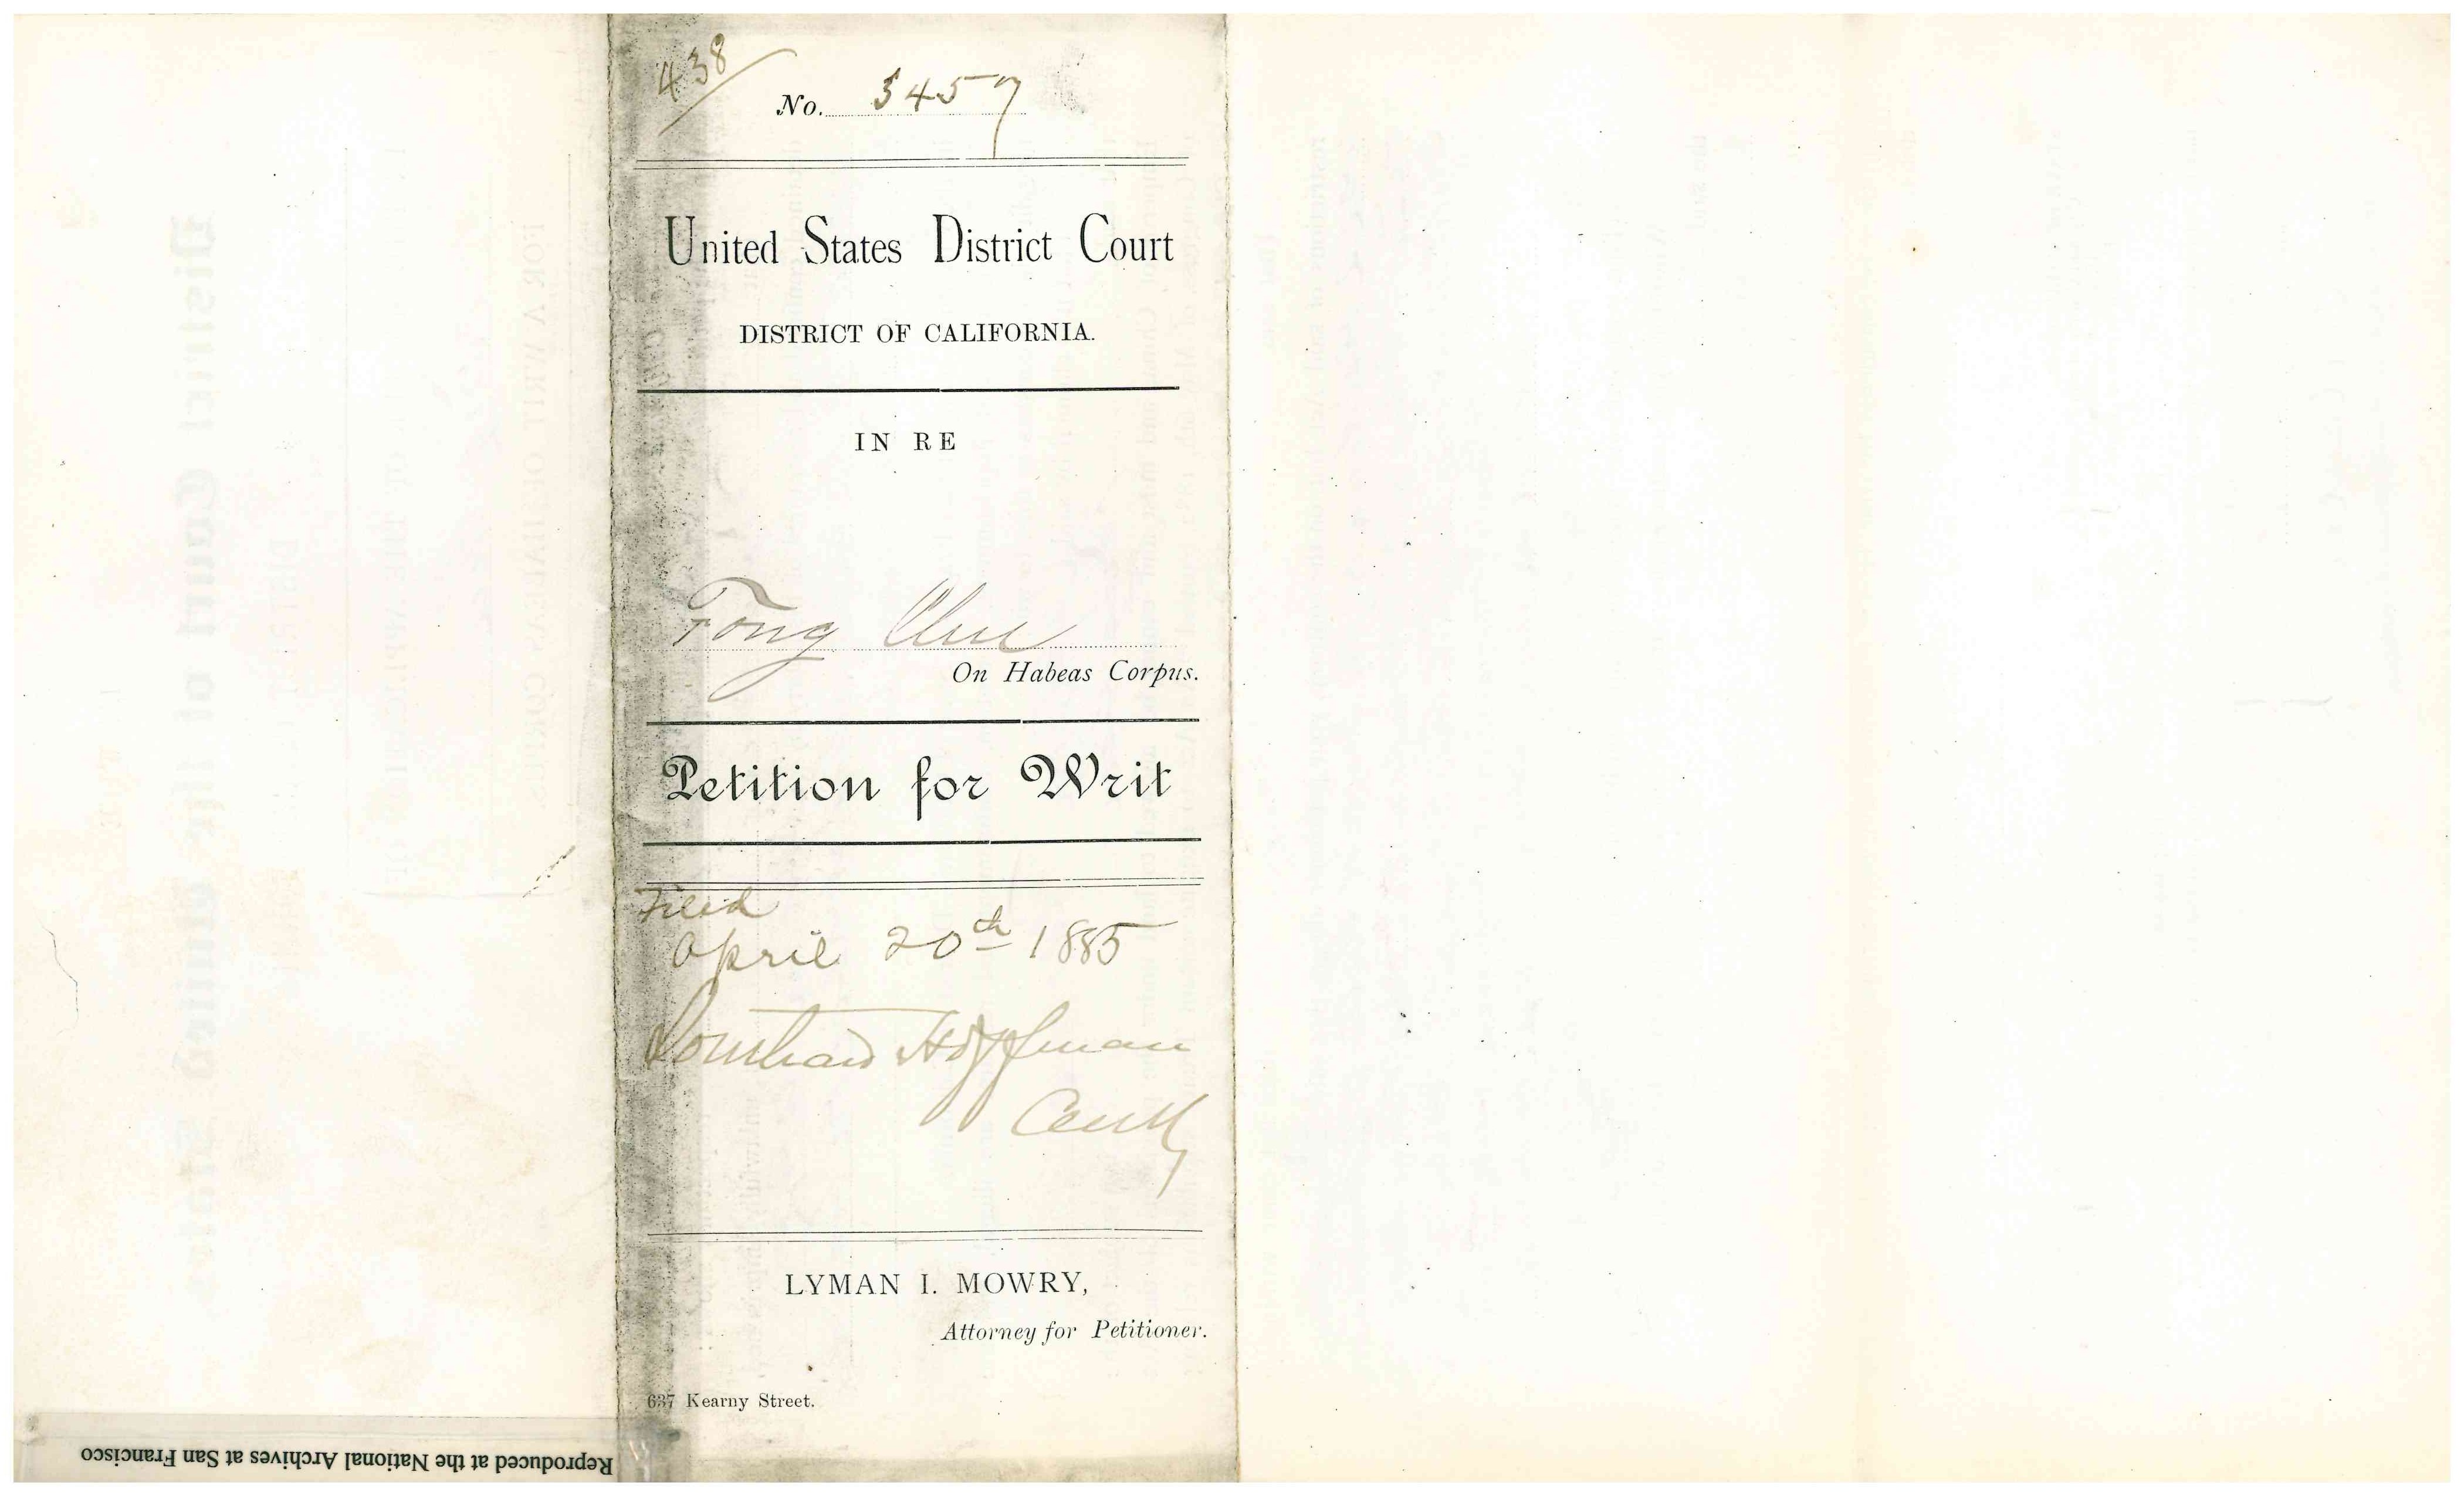 438
No. 5457
United States District Court
DISTRICT OF CALIFORNIA.
IN RE
Fong
On Habeas Corpus.
Petition for Writ
Filed
April 20th 1885
Southard Hoffman
Clerk
LYMAN I. MOWRY,
Attorney for Petitioner.
637 Kearny Street.
Reproduced at the National Archives at San Francisco